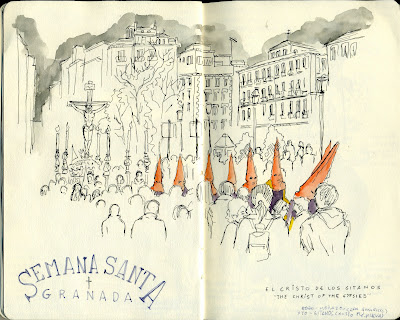 SEMANA SANTA
GRANADA
EL CRISTO DE LOS GITANOS
"THE CHRIST OF THE GYPSIES"